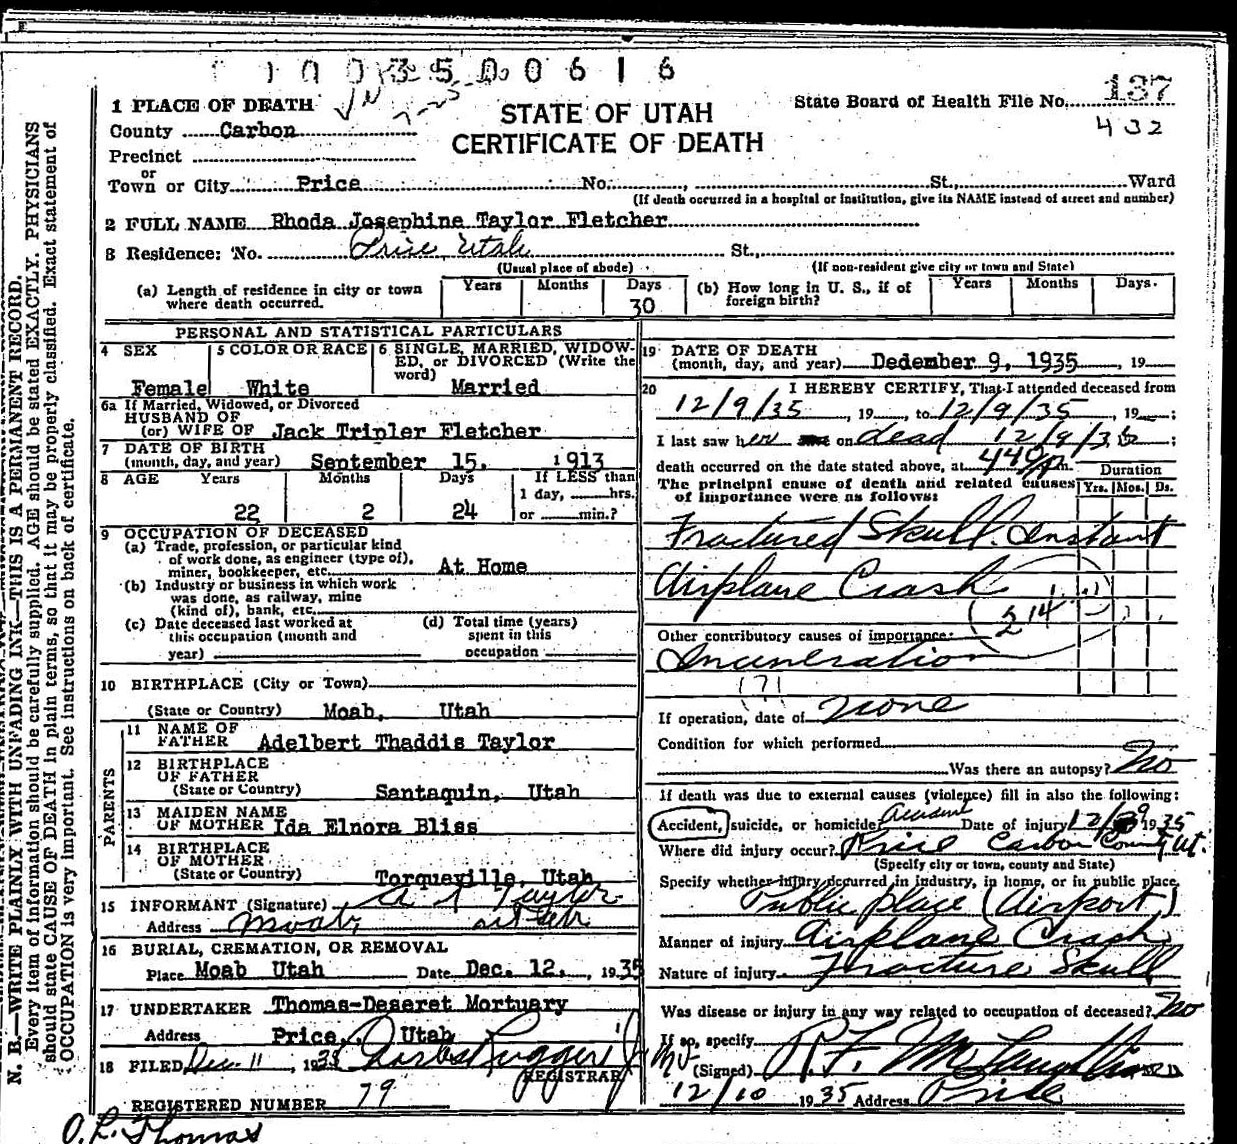 1003500616
1 PLACE OF DEATH
County Carbon
STATE OF UTAH
CERTIFICATE OF DEATH
State Board of Health File No. 137
432
Precinct
or
Town or City Price No. , St., Ward
(If death occurred in a hospital or institution, give its NAME instead of street and number)
2 FULL NAME Rhoda Josephine Taylor Fletcher
3 Residence: No. Price Utah St.,
(Usual place of abode) (If non-resident give city or town and State)
(a) Length of residence in city or town where death occurred. Years Months Days 30
(b) How long in U. S., if of foreign birth? Years Months Days.
PERSONAL AND STATISTICAL PARTICULARS
4 SEX Female
5 COLOR OR RACE White
6 SINGLE, MARRIED, WIDOWED, or DIVORCED (Write the word) Married
6a If Married, Widowed, or Divorced
HUSBAND OF
(or) WIFE OF Jack Tripler Fletcher
7 DATE OF BIRTH
(month, day, and year) September 15, 1913
8 AGE Years Months Days If LESS than
1 day, hrs.
22 2 24 or min.?
9 OCCUPATION OF DECEASED
(a) Trade, profession, or particular kind
of work done, as engineer (type of),
miner, bookkeeper, etc. At Home
(b) Industry or business in which work
was done, as railway, mine
(kind of), bank, etc.
(c) Date deceased last worked at
this occupation (month and
year)
(d) Total time (years)
spent in this
occupation
10 BIRTHPLACE (City or Town)
(State or Country) Moab, Utah
PARENTS
11 NAME OF
FATHER Adelbert Thaddis Taylor
12 BIRTHPLACE
OF FATHER
(State or Country) Santaquin, Utah
13 MAIDEN NAME
OF MOTHER Ida Elnora Bliss
14 BIRTHPLACE
OF MOTHER
(State or Country) Torqueville, Utah
15 INFORMANT (Signature) A T Taylor
Address Moab,
16 BURIAL, CREMATION, OR REMOVAL
Place Moab Utah Date Dec. 12, , 1935
17 UNDERTAKER Thomas-Deseret Mortuary
Address Price, Utah
18 FILED Dec. 11 , 1935
REGISTRAR
REGISTERED NUMBER 79
O. L. Thomas
19 DATE OF DEATH
(month, day, and year) Dedember 9, 1935 , 19
20 I HEREBY CERTIFY, That I attended deceased from
12/9/35 , 19 , to 12/9/35 , 19 ;
I last saw her on dead 12/9/35 ;
death occurred on the date stated above, at 440 P m. Duration
The principal cause of death and related causes Yrs. Mos. Ds.
of importance were as follows:
Fractured Skull. Instant
Airplane Crash
214
Other contributory causes of importance:
Incineration
(?)
If operation, date of none
Condition for which performed
Was there an autopsy? No
If death was due to external causes (violence) fill in also the following:
Accident, suicide, or homicide? Accident Date of injury 12/9 1935
Where did injury occur? Price Carbon County Ut.
(Specify city or town, county and State)
Specify whether injury occurred in industry, in home, or in public place.
Public place (Airport)
Manner of injury Airplane Crash
Nature of injury Fracture Skull
Was disease or injury in any way related to occupation of deceased? No
If so, specify
(Signed) R. F. McLaughlin M D
12/10 1935 Address Price
N. B.—WRITE PLAINLY WITH UNFADING INK—THIS IS A PERMANENT RECORD.
Every item of information should be carefully supplied. AGE should be stated EXACTLY. PHYSICIANS
should state CAUSE OF DEATH in plain terms, so that it may be properly classified. Exact statement of
OCCUPATION is very important. See instructions on back of certificate.